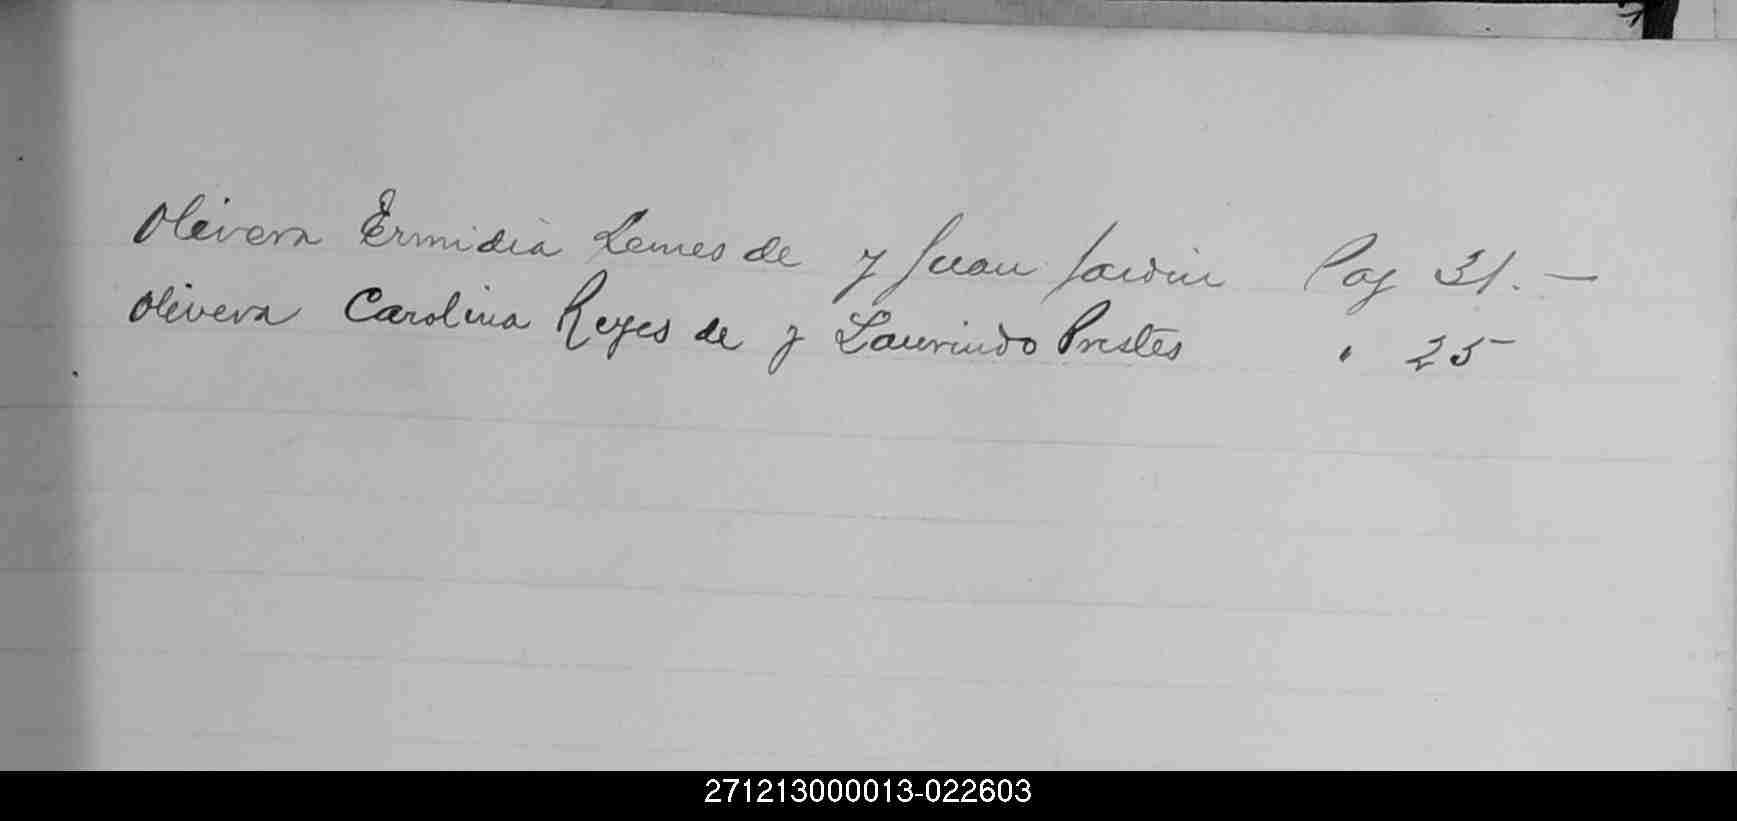 Olivera Ermidia Lemes de y Juan Jardin Pag 31. —
Olivera Carolina Reyes de y Laurindo Prestes " 25
271213000013-022603